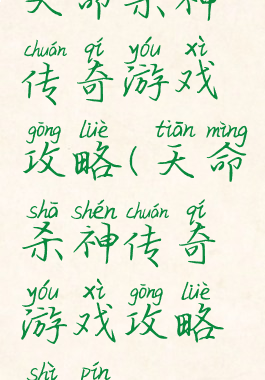 天命杀神
chuán qí yóu xì
传奇游戏
gōng lüè tiān mìng
攻略(天命
shā shén chuán qí
杀神传奇
yóu xì gōng lüè
游戏攻略
shì pín